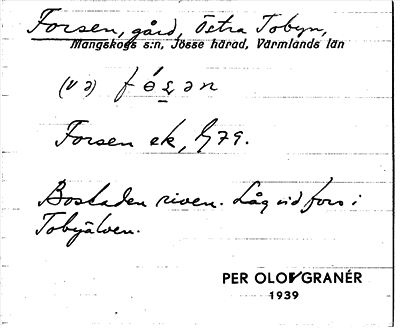 Forsen, gård, Östra Tobyn,
Mangskogs s:n, Jösse härad, Värmlands län
(v ə) fósən
Forsen ek, 579.
Bostaden riven. Låg vid fors i
Tobyälven.
PER OLOV GRANÉR
1939